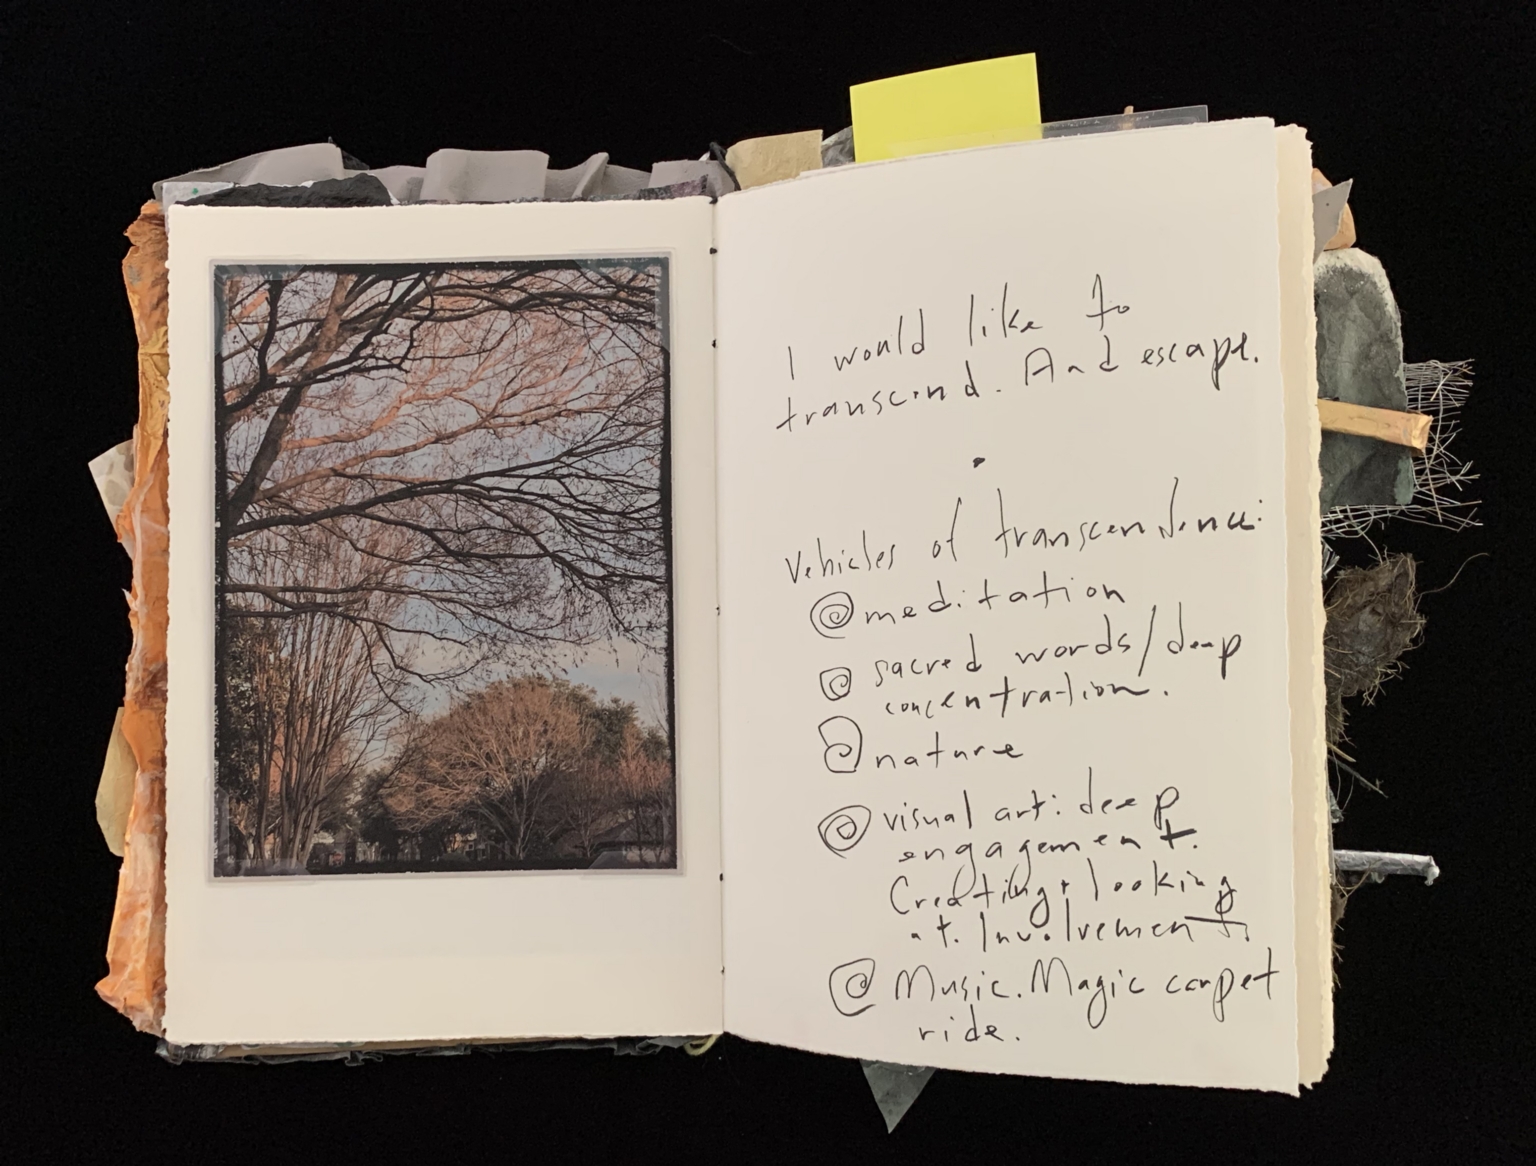 I would like to
transcend. And escape.
Vehicles of transcendence:
meditation
sacred words/deep
concentration.
nature
visual art: deep
engagement.
Creating + looking
at. Involvement.
Music. Magic carpet
ride.